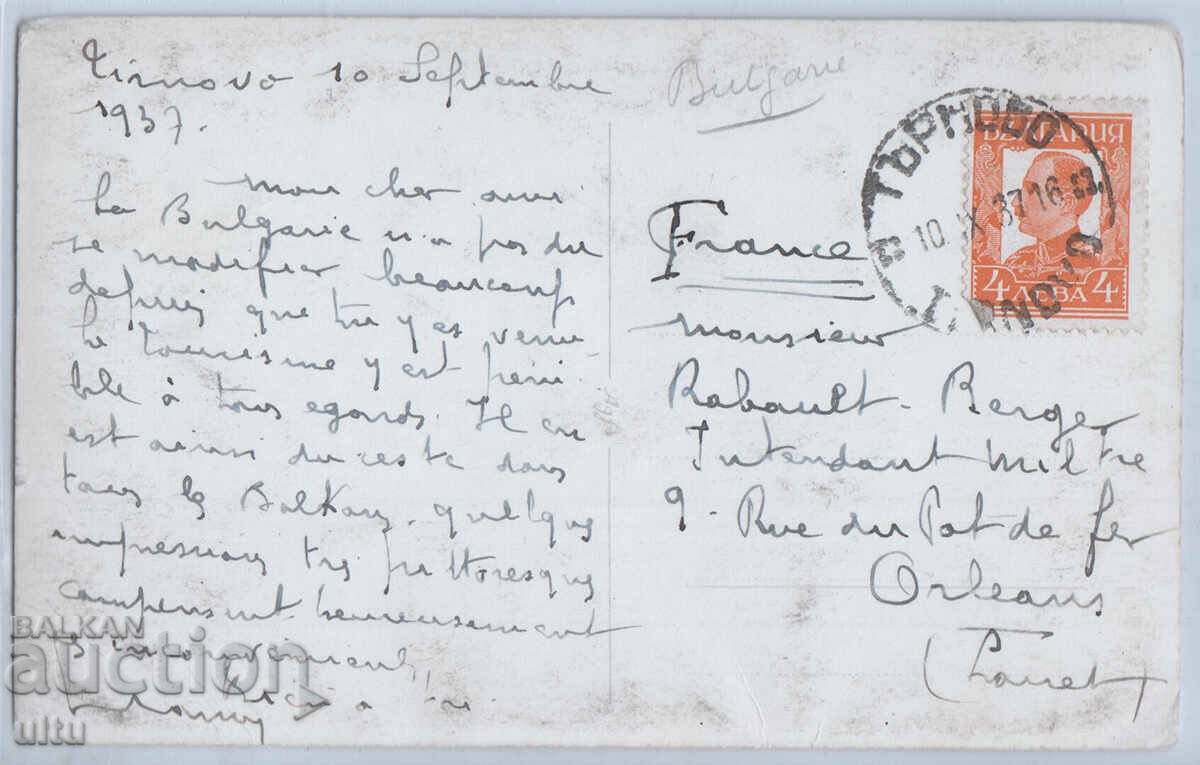 Tirnovo 10 Septembre
1937.
mon cher ami
La Bulgarie n'a pas du
se modifier beaucoup
depuis que tu y es venu
le tourisme y est péni-
ble à tous egards. Il en
est ainsi du reste dans
tous les Balkans. quelques
impressions très pittoresques
compensent heureusement
les inconvenients
Bien a toi
Bulgarie
БЪЛГАРИЯ
4 ЛЕВА 4
ТЪРНОВО
10. IX 37 16
TARNOVO
France
Monsieur
Rabault-Berger
Intendant Miltre
9. Rue du Pot de fer
Orleans
(Loiret)
BALKAN
auction
ultu